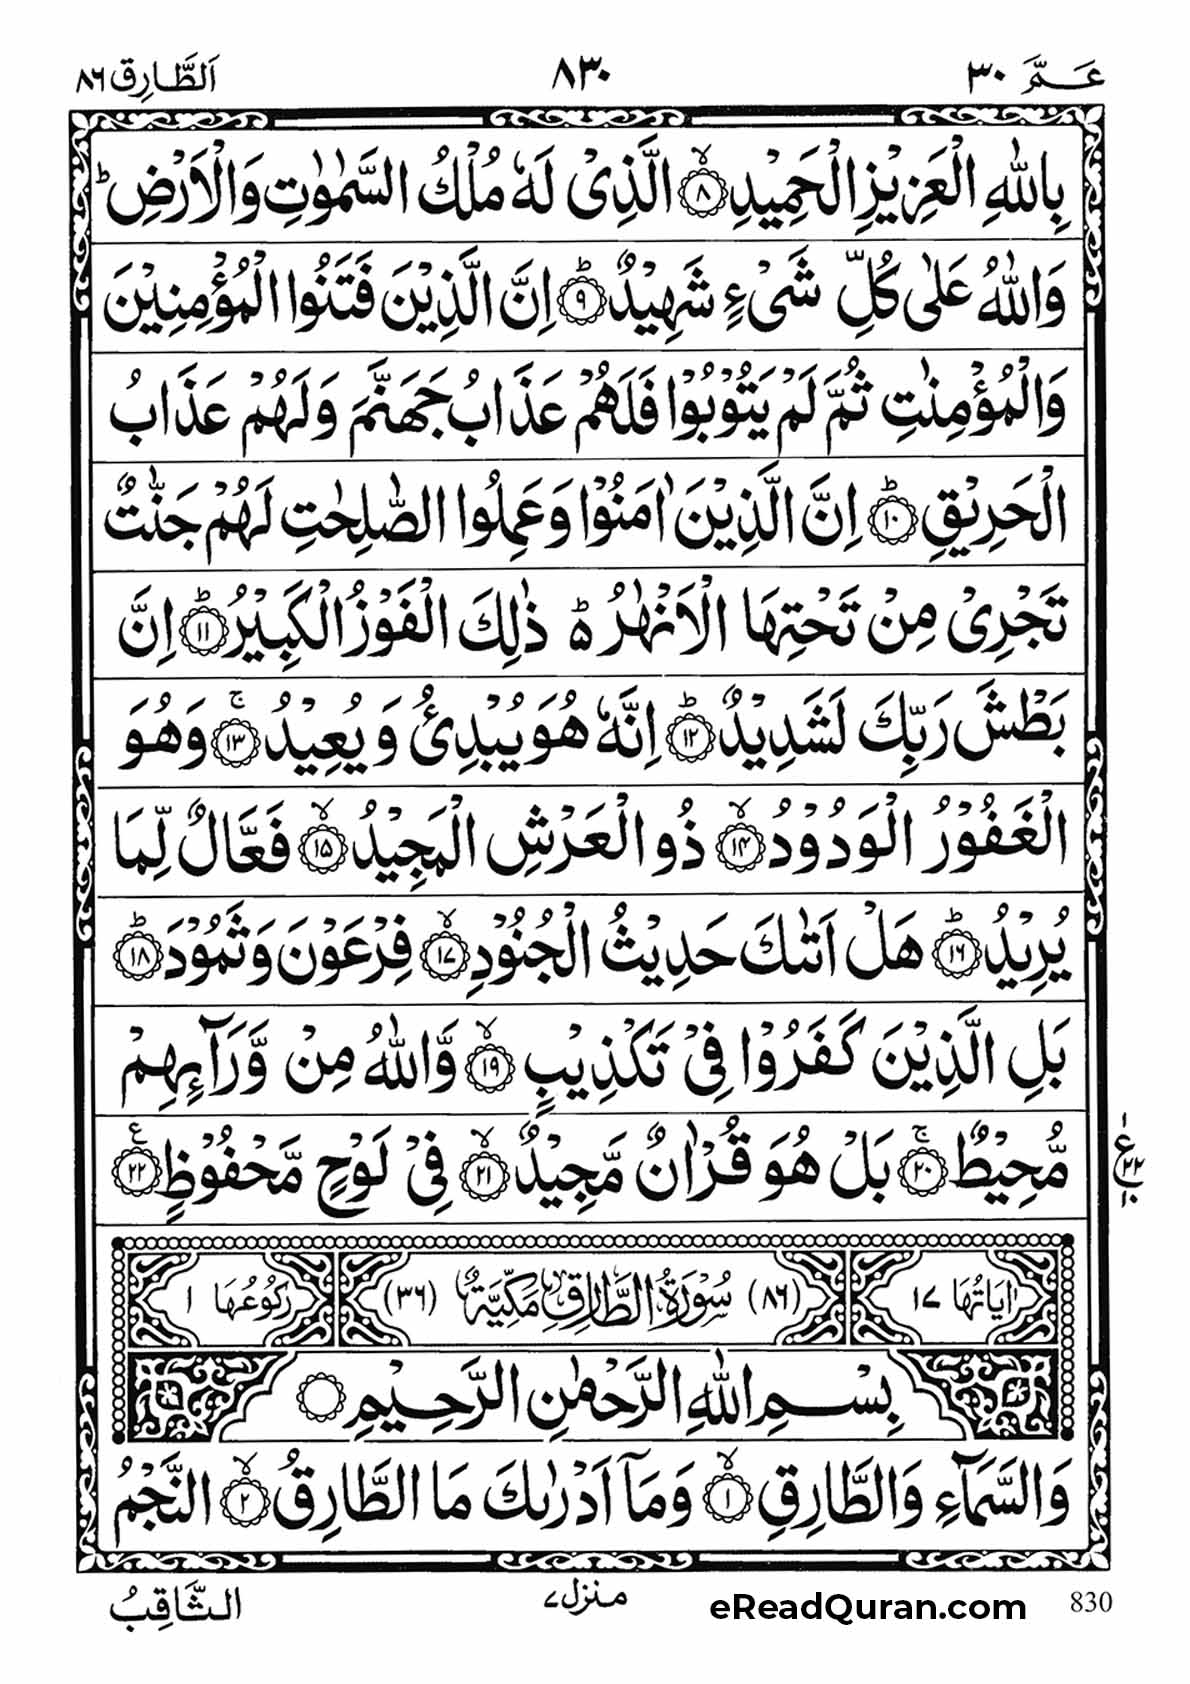 عَـمَّ ٣٠
٨٣٠
اَلطَّارِق ٨٦
بِاللّٰهِ الْعَزِيْزِ الْحَمِيْدِ ۙ﴿۸﴾ الَّذِىْ لَهٗ مُلْكُ السَّمٰوٰتِ وَالْاَرْضِ ؕ
وَاللّٰهُ عَلٰى كُلِّ شَىْءٍ شَهِيْدٌ ؕ﴿۹﴾ اِنَّ الَّذِيْنَ فَتَنُوا الْمُؤْمِنِيْنَ
وَالْمُؤْمِنٰتِ ثُمَّ لَمْ يَتُوْبُوْا فَلَهُمْ عَذَابُ جَهَنَّمَ وَلَهُمْ عَذَابُ
الْحَرِيْقِ ؕ﴿۱۰﴾ اِنَّ الَّذِيْنَ اٰمَنُوْا وَعَمِلُوا الصّٰلِحٰتِ لَهُمْ جَنّٰتٌ
تَجْرِىْ مِنْ تَحْتِهَا الْاَنْهٰرُ ۬ؕ ذٰلِكَ الْفَوْزُ الْكَبِيْرُ ؕ﴿۱۱﴾ اِنَّ
بَطْشَ رَبِّكَ لَشَدِيْدٌ ؕ﴿۱۲﴾ اِنَّهٗ هُوَ يُبْدِئُ وَيُعِيْدُ ۚ﴿۱۳﴾ وَهُوَ
الْغَفُوْرُ الْوَدُوْدُ ۙ﴿۱۴﴾ ذُو الْعَرْشِ الْمَجِيْدُ ۙ﴿۱۵﴾ فَعَّالٌ لِّمَا
يُرِيْدُ ؕ﴿۱۶﴾ هَلْ اَتٰىكَ حَدِيْثُ الْجُنُوْدِ ۙ﴿۱۷﴾ فِرْعَوْنَ وَثَمُوْدَ ؕ﴿۱۸﴾
بَلِ الَّذِيْنَ كَفَرُوْا فِىْ تَكْذِيْبٍ ۙ﴿۱۹﴾ وَّاللّٰهُ مِنْ وَّرَآئِهِمْ
مُّحِيْطٌ ۚ﴿۲۰﴾ بَلْ هُوَ قُرْاٰنٌ مَّجِيْدٌ ۙ﴿۲۱﴾ فِىْ لَوْحٍ مَّحْفُوْظٍ ع﴿۲۲﴾
١ ع ٢٢ ١٠
اٰيَاتُهَا ١٧
(٨٦) سُوْرَةُ الطَّارِقِ مَكِّيَّةٌ (٣٦)
رُكُوْعُهَا ١
بِسْمِ اللّٰهِ الرَّحْمٰنِ الرَّحِيْمِ
وَالسَّمَآءِ وَالطَّارِقِ ۙ﴿۱﴾ وَمَآ اَدْرٰىكَ مَا الطَّارِقُ ۙ﴿۲﴾ النَّجْمُ
الثَّاقِبُ
منزل ٧
eReadQuran.com
830